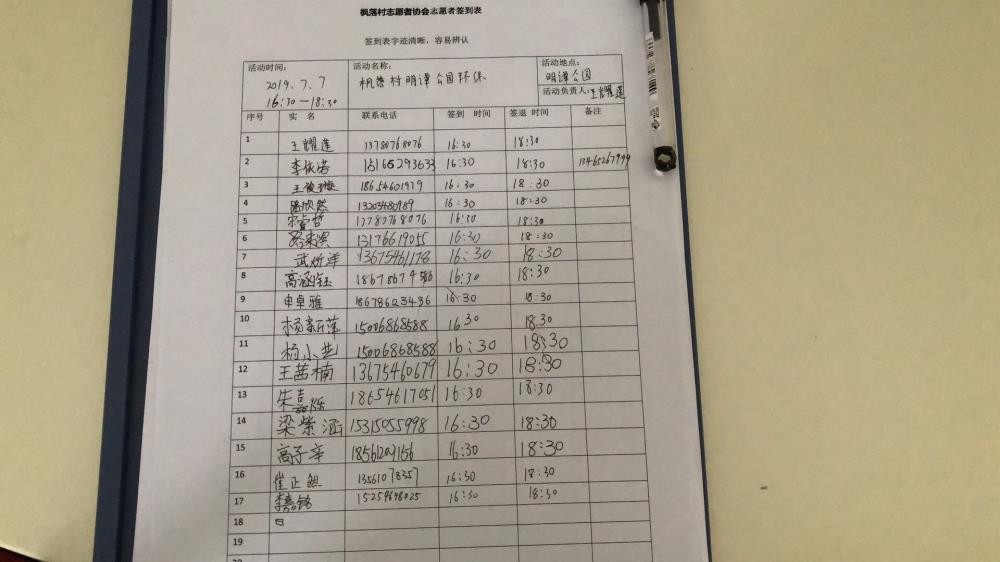 枫落村志愿者协会志愿者签到表
签到表字迹清晰，容易辨认
活动时间： 活动名称： 活动地点：
2019.7.7 枫落村明潭公园环保 明潭公园
16:30—18:30 活动负责人：王耀莲
序号 实 名 联系电话 签到 时间 签退 时间 备注
1 王耀莲 13780768076 16:30 18:30
2 李依诺 16:30 18:30 13465267999
3 18654601979 16:30 18:30
4 欣然 13203480989 16:30 18:30
5 宋睿哲 16:30 18:30
6 13176619055 16:30 18:30
7 武 洋 13675461178 16:30 18:30
8 高涵钰 16:30 18:30
9 申卓雅 18678623436 16:30 18:30
10 杨新萍 15006868588 16:30 18:30
11 杨小艺 15006868588 16:30 18:30
12 王茜楠 13675460679 16:30 18:30
13 朱嘉烁 18654617051 16:30 18:30
14 梁紫涵 15315055998 16:30 18:30
15 高子辛 16:30 18:30
16 崔正然 13561078357 16:30 18:30
17 李嘉铭 15254698025 16:30 18:30
18
19